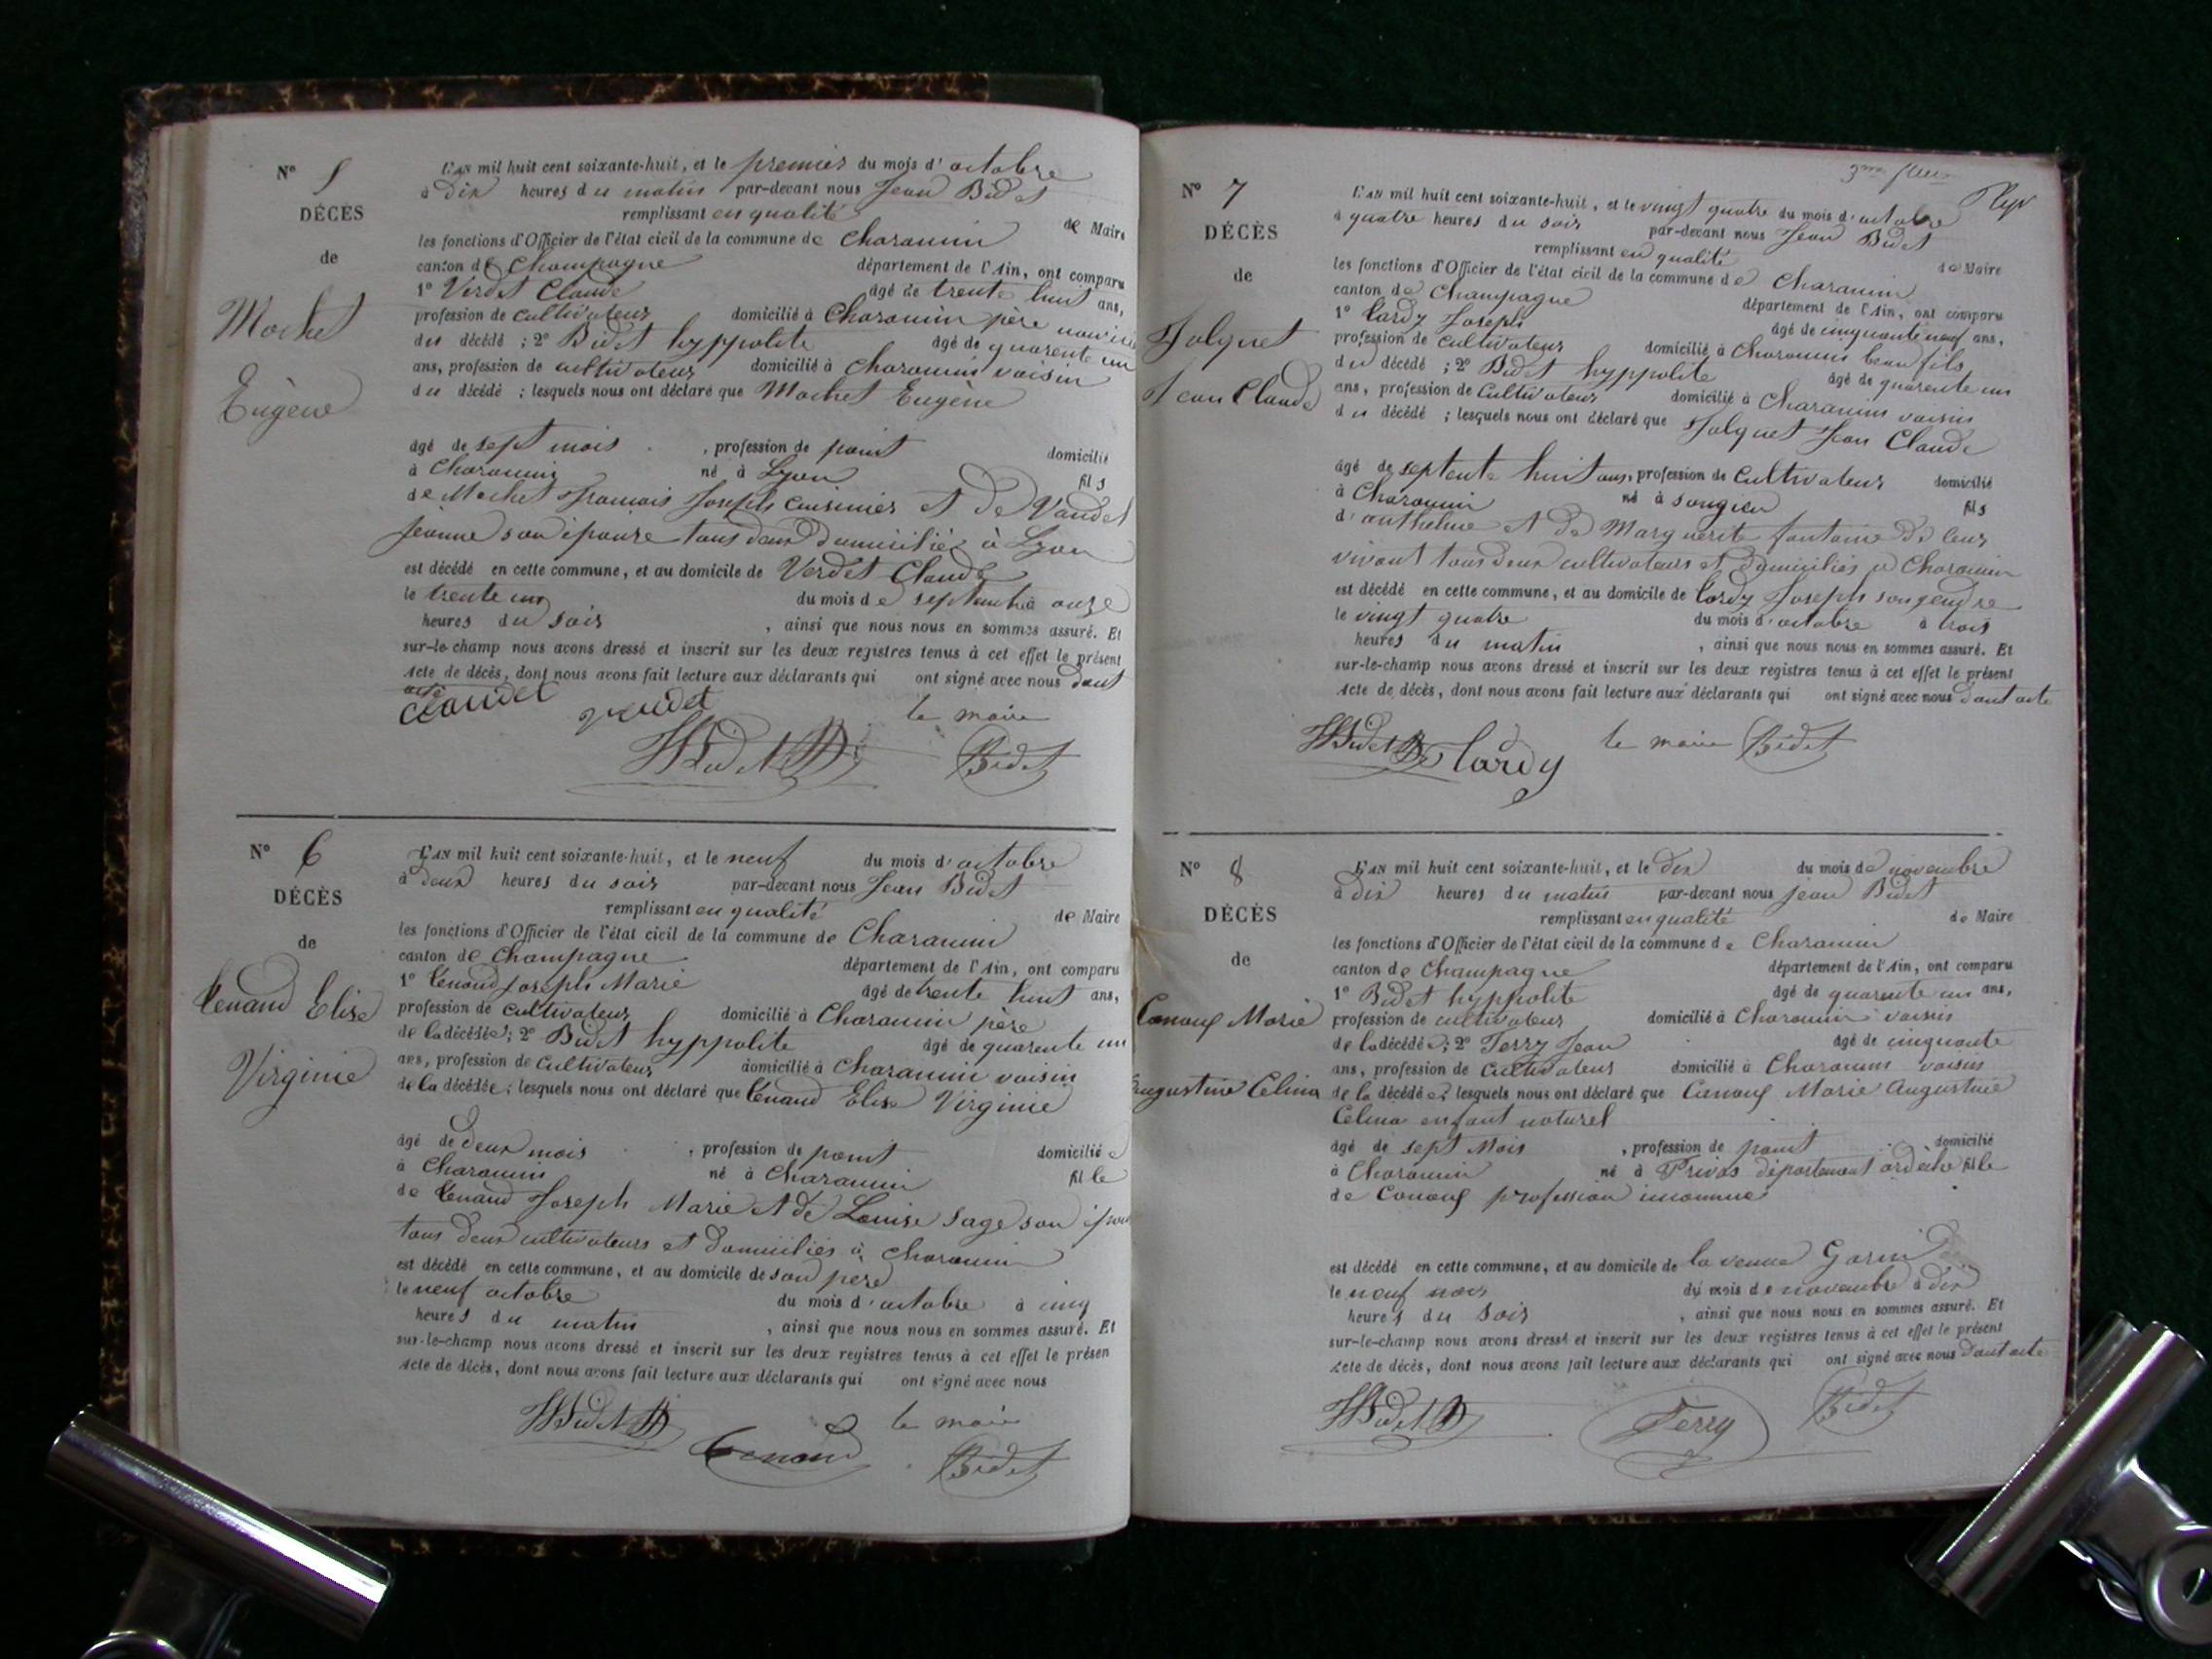 N° 5
DÉCÈS
de
Mochet
Eugène
L'AN mil huit cent soixante-huit, et le premier du mois d'octobre
à dix heures du matin par-devant nous Jean Bidet
remplissant en qualité de Maire
les fonctions d'Officier de l'état civil de la commune de Charancin
canton de Champagne département de l'Ain, ont comparu
1° Verdet Claude âgé de trente huit ans,
profession de cultivateur domicilié à Charancin père nourricier
du décédé ; 2° Bidet hyppolite âgé de quarente un
ans, profession de cultivateur domicilié à Charancin voisin
du décédé ; lesquels nous ont déclaré que Mochet Eugène
âgé de sept mois , profession de point domicilié
à Charancin né à Lyon fils
de Mochet francois Joseph cuisinier et de Vaudet
jeanne son épouse tous deux domiciliés à Lyon
est décédé en cette commune, et au domicile de Verdet Claude
le trente un du mois de septembre à onze
heures du soir , ainsi que nous nous en sommes assuré. Et
sur-le-champ nous avons dressé et inscrit sur les deux registres tenus à cet effet le présent
acte de décès, dont nous avons fait lecture aux déclarants qui ont signé avec nous dont
acte
le maire
HBidet Bidet
N° 6
DÉCÈS
de
Tenand Elise
Virginie
L'AN mil huit cent soixante-huit, et le neuf du mois d'octobre
à deux heures du soir par-devant nous Jean Bidet
remplissant en qualité de Maire
les fonctions d'Officier de l'état civil de la commune de Charancin
canton de Champagne département de l'Ain, ont comparu
1° Tenand Joseph Marie âgé de trente huit ans,
profession de cultivateur domicilié à Charancin père
de la décédée ; 2° Bidet hyppolite âgé de quarente un
ans, profession de cultivateur domicilié à Charancin voisin
de la décédée ; lesquels nous ont déclaré que Tenand Elise Virginie
âgé de deux mois , profession de point domiciliée
à Charancin né à Charancin fille
de Tenand Joseph Marie et de Louise Sage son
tous deux cultivateurs et domiciliés à Charancin
est décédé en cette commune, et au domicile de son père
le neuf octobre du mois d'octobre à cinq
heures du matin , ainsi que nous nous en sommes assuré. Et
sur-le-champ nous avons dressé et inscrit sur les deux registres tenus à cet effet le présen
acte de décès, dont nous avons fait lecture aux déclarants qui ont signé avec nous
HBidet Tenand le maire
Bidet
N° 7
DÉCÈS
de
Jolyuet
Jean Claude
L'AN mil huit cent soixante-huit, et le vingt quatre du mois d'octobre
à quatre heures du soir par-devant nous Jean Bidet
remplissant en qualité de Maire
les fonctions d'Officier de l'état civil de la commune de Charancin
canton de Champagne département de l'Ain, ont comparu
1° Lardy Joseph âgé de cinquante neuf ans,
profession de cultivateur domicilié à Charancin beau fils
du décédé ; 2° Bidet hyppolite âgé de quarente un
ans, profession de cultivateur domicilié à Charancin voisin
du décédé ; lesquels nous ont déclaré que Jolyuet Jean Claude
âgé de septente huit ans, profession de cultivateur domicilié
à Charancin né à songieu fils
d'anthelme et de Marguerite fontaine de leur
vivant tous deux cultivateurs et domiciliés à Charancin
est décédé en cette commune, et au domicile de Lardy Joseph son gendre
le vingt quatre du mois d'octobre à trois
heures du matin , ainsi que nous nous en sommes assuré. Et
sur-le-champ nous avons dressé et inscrit sur les deux registres tenus à cet effet le présent
acte de décès, dont nous avons fait lecture aux déclarants qui ont signé avec nous dont acte
HBidet Lardy le maire Bidet
N° 8
DÉCÈS
de
Canouf Marie
Augustine Celina
L'AN mil huit cent soixante-huit, et le dix du mois de novembre
à dix heures du matin par-devant nous jean Bidet
remplissant en qualité de Maire
les fonctions d'Officier de l'état civil de la commune de Charancin
canton de Champagne département de l'Ain, ont comparu
1° Bidet hyppolite âgé de quarente un ans,
profession de cultivateur domicilié à Charancin voisin
de la décédée ; 2° Terry Jean âgé de cinquante
ans, profession de cultivateur domicilié à Charancin voisin
de la décédée lesquels nous ont déclaré que Canouf Marie Augustine
Celina enfant naturel
âgé de sept mois , profession de point domicilié
à Charancin né à Privas département ardèche fille
de Canouf profession inconnue
est décédé en cette commune, et au domicile de la veuve Garin
le neuf du mois de novembre à dix
heures du soir , ainsi que nous nous en sommes assuré. Et
sur-le-champ nous avons dressé et inscrit sur les deux registres tenus à cet effet le présent
acte de décès, dont nous avons fait lecture aux déclarants qui ont signé avec nous dont acte
HBidet Terry Bidet